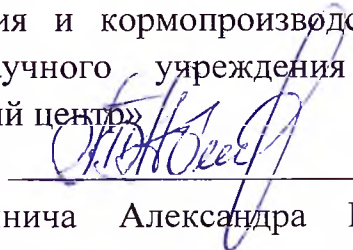 ия и кормопроизводс
аучного учреждения
ий центр»
нича Александра